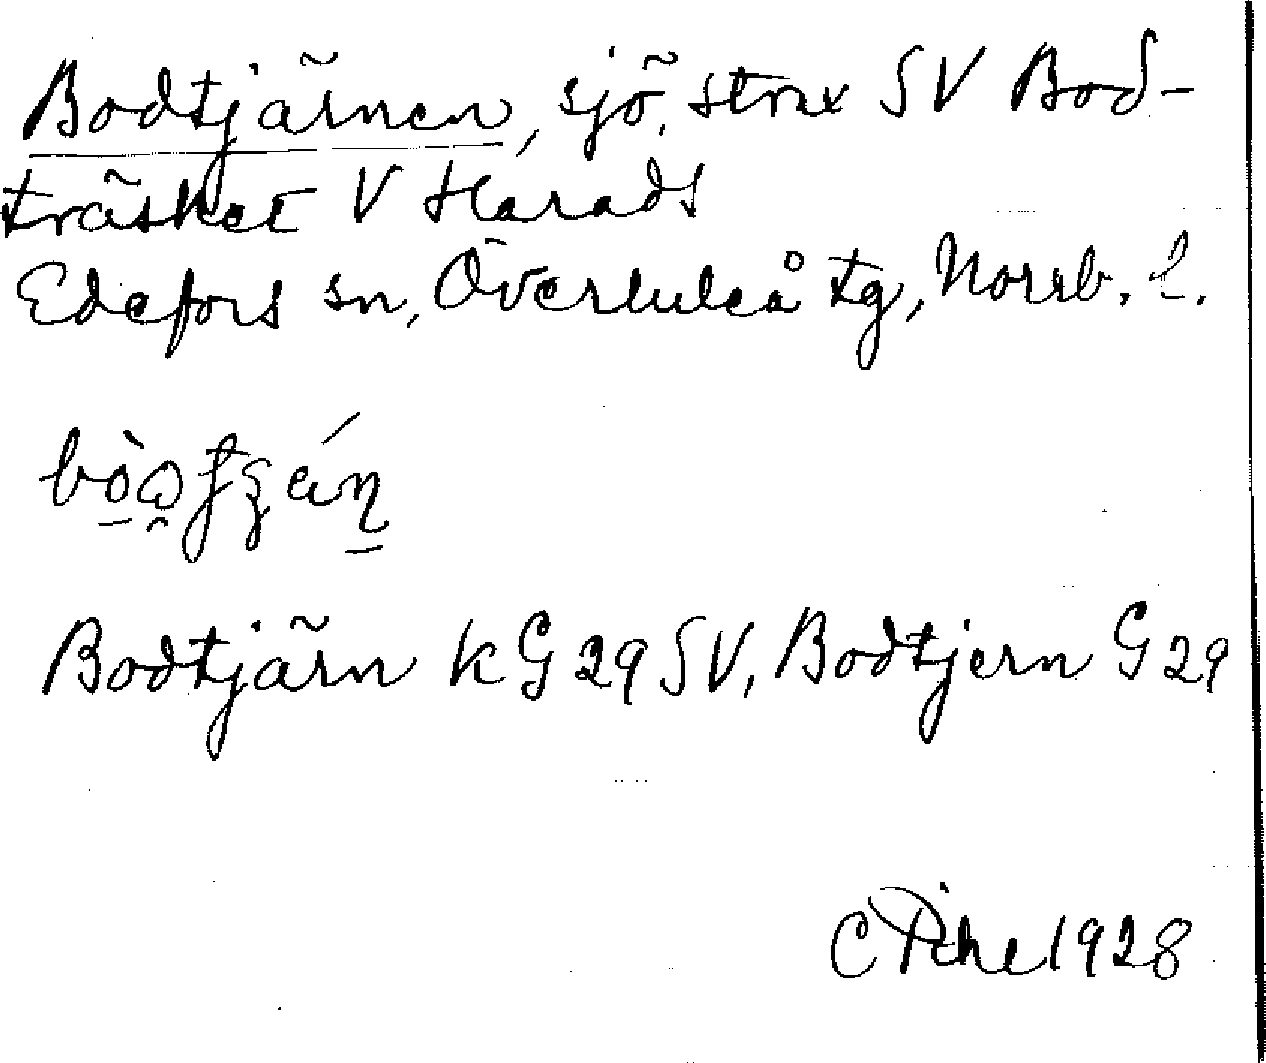 Bodtjärnen, sjö, strax SV Bod-
träsket V Harads
Edefors sn, Överluleå tg, Norrb. l.
Bodtjärn kG29SV, Bodtjern G29
C Pihl 1928